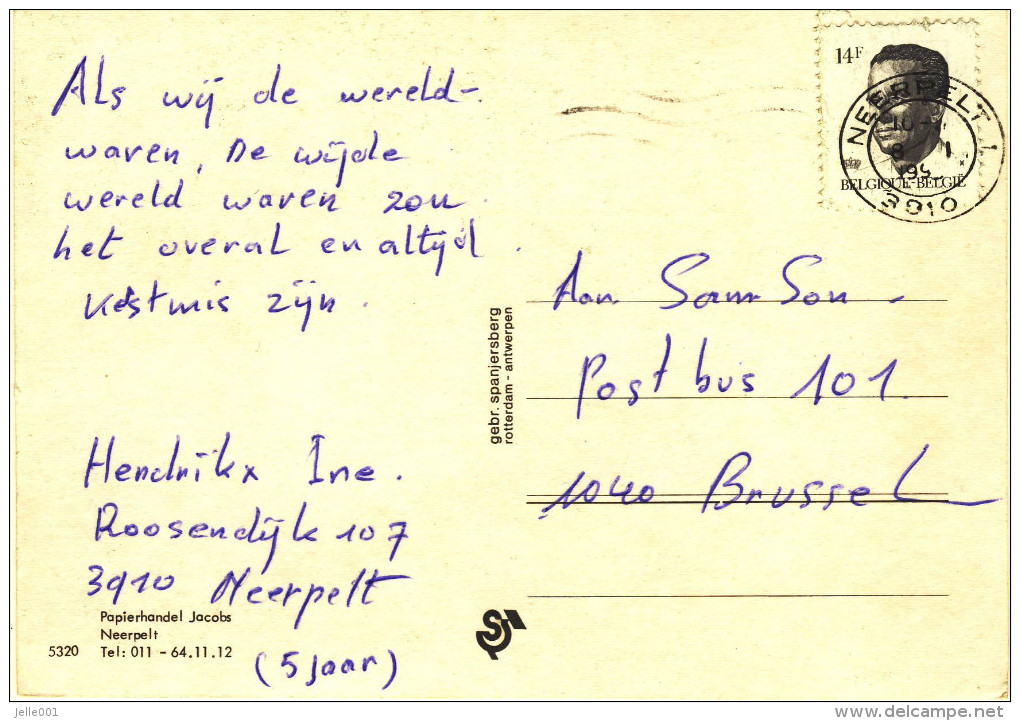 Als wij de wereld-
waren, De wijde
wereld waren zou
het overal en altijd
kestmis zijn.
Hendrikx Ine.
Roosendijk 107
3910 Neerpelt
Papierhandel Jacobs
Neerpelt
5320 Tel: 011 - 64.11.12
(5 jaar)
gebr. spanjersberg
rotterdam - antwerpen
14F
BELGIQUE-BELGIË
NEERPELT 1
3910
Aan Sam Son -
Postbus 101.
1040 Brussel
jelle001
delcampe.net